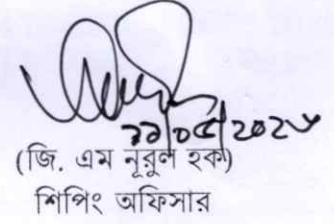 ১১/০৫/২০২৬
(জি. এম নূরুল হক)
শিপিং অফিসার